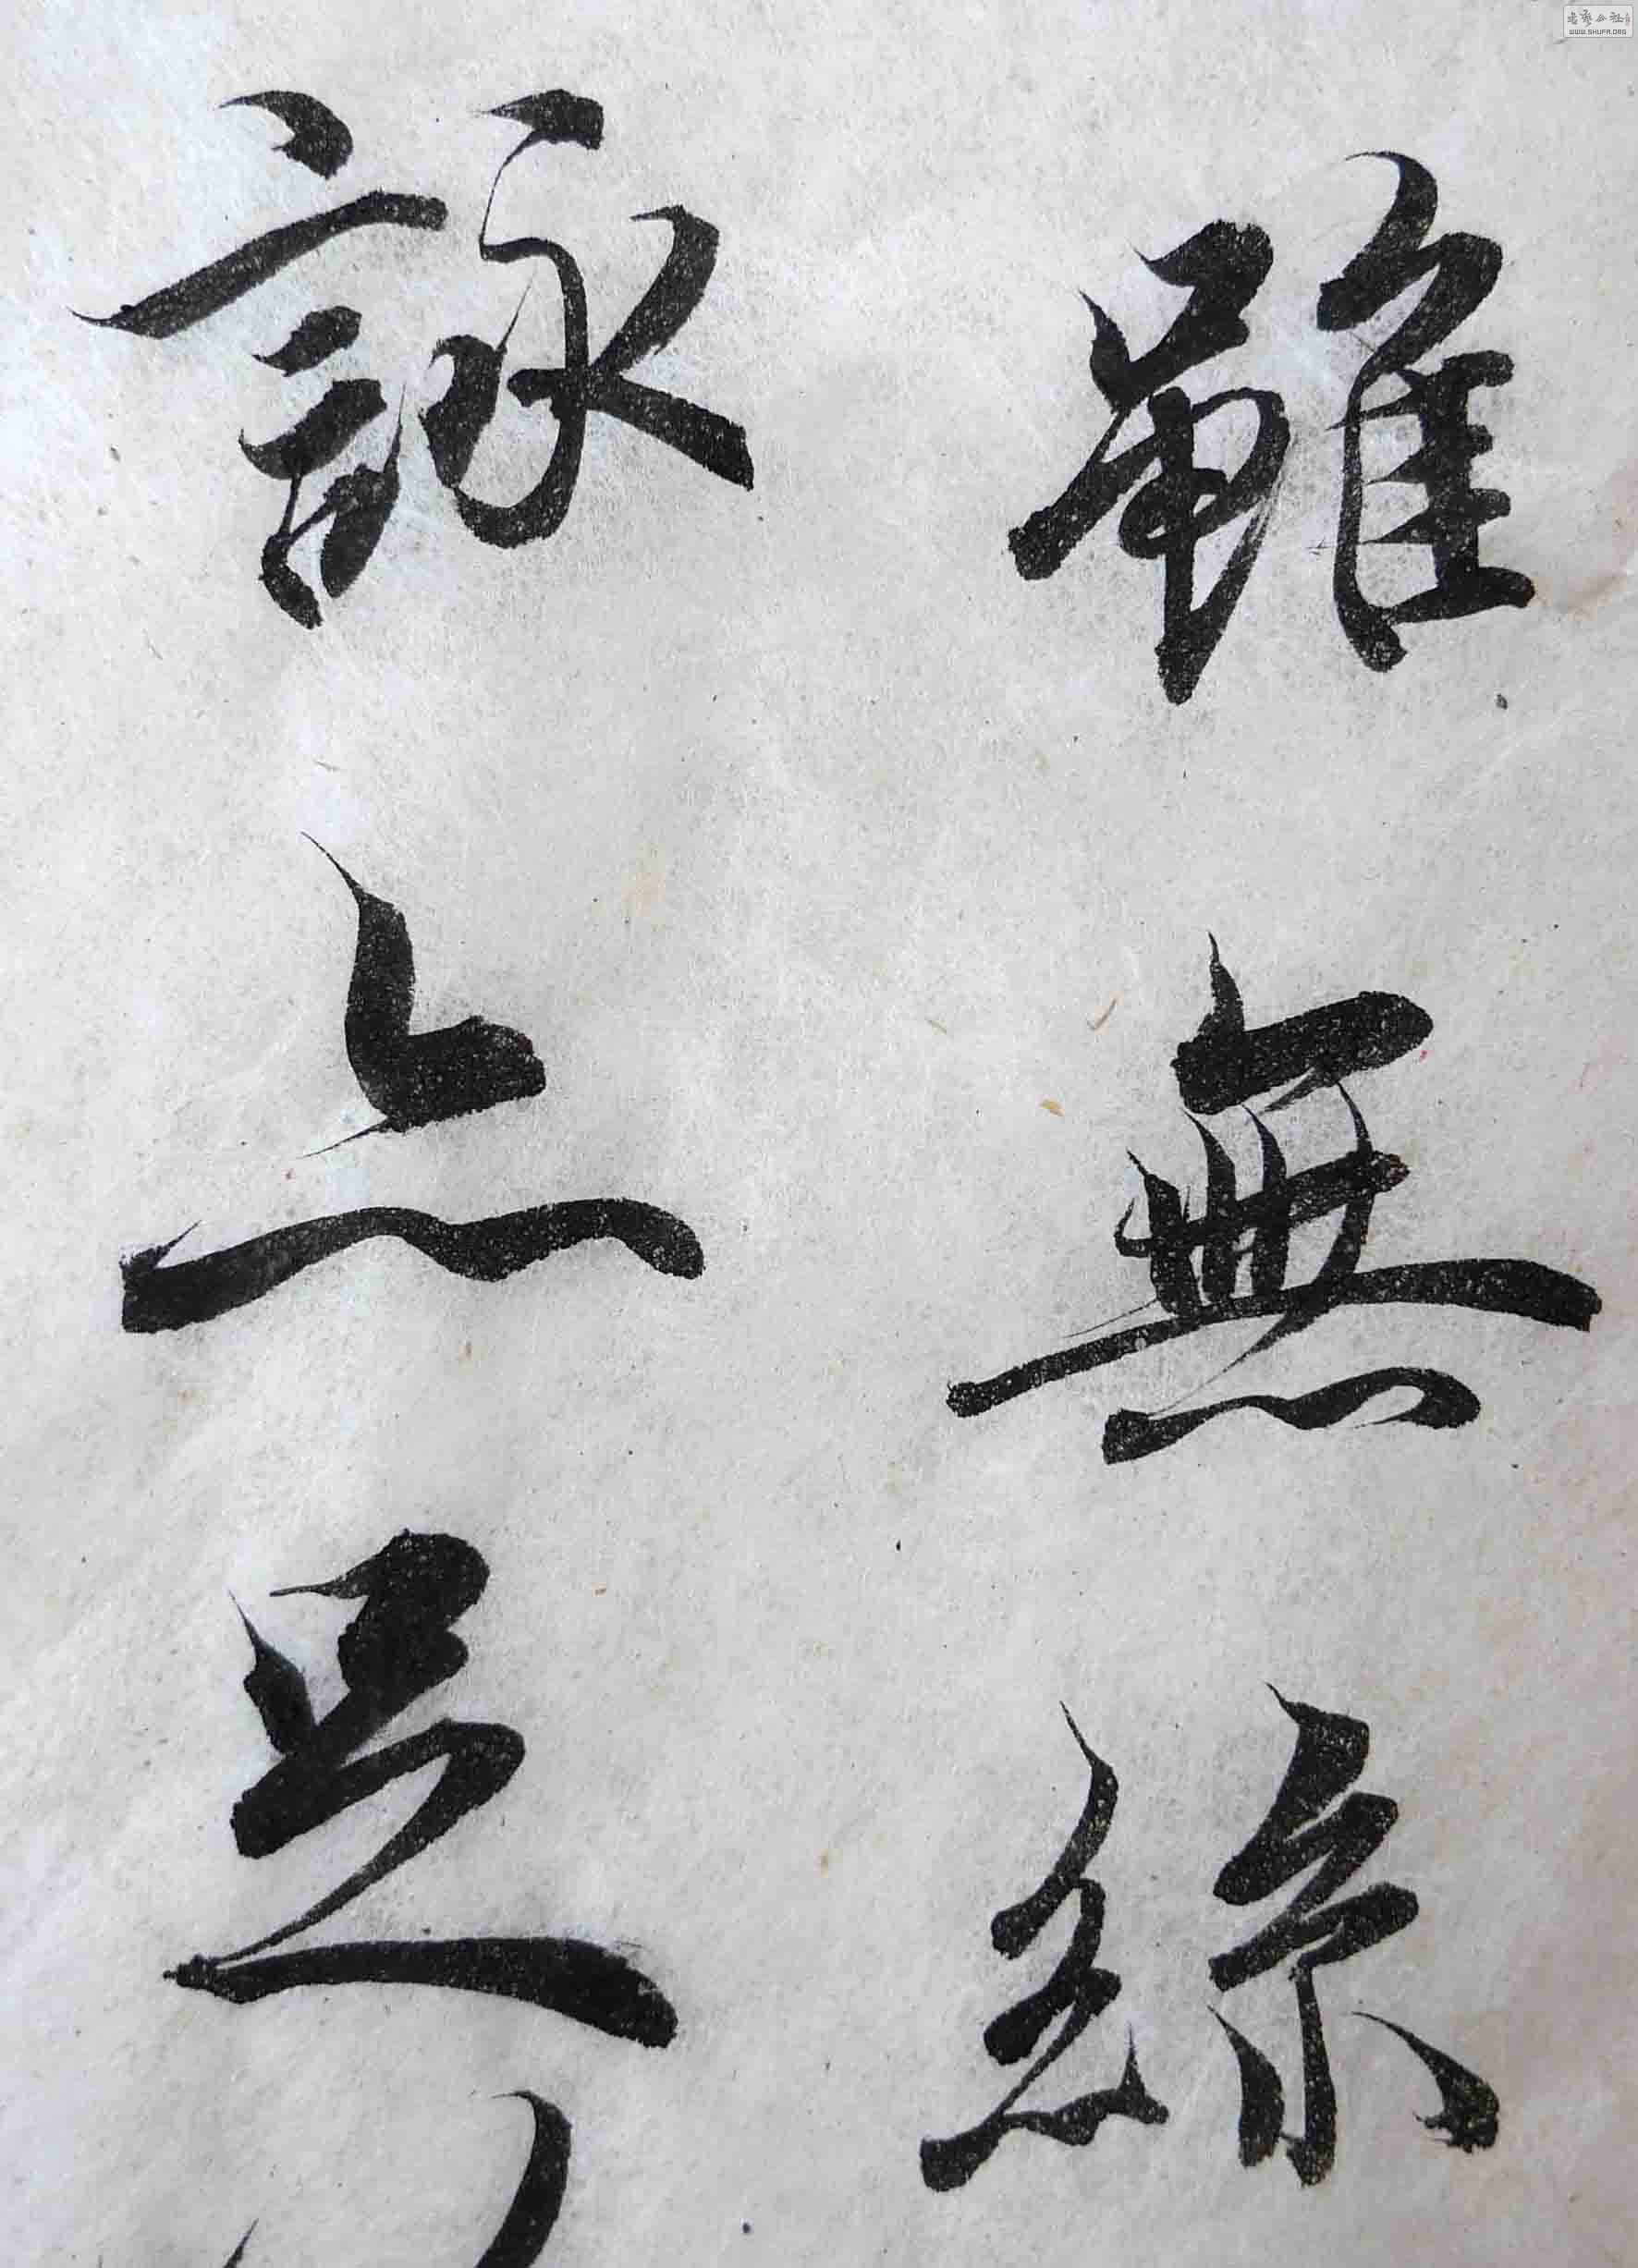 雖無絲
詠亦足
WWW.SHUFA.ORG